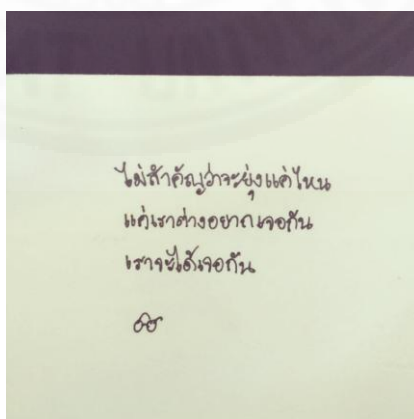 ไม่สำคัญว่าจะยุ่งแค่ไหน
แค่เราต่างอยากเจอกัน
เราจะได้เจอกัน